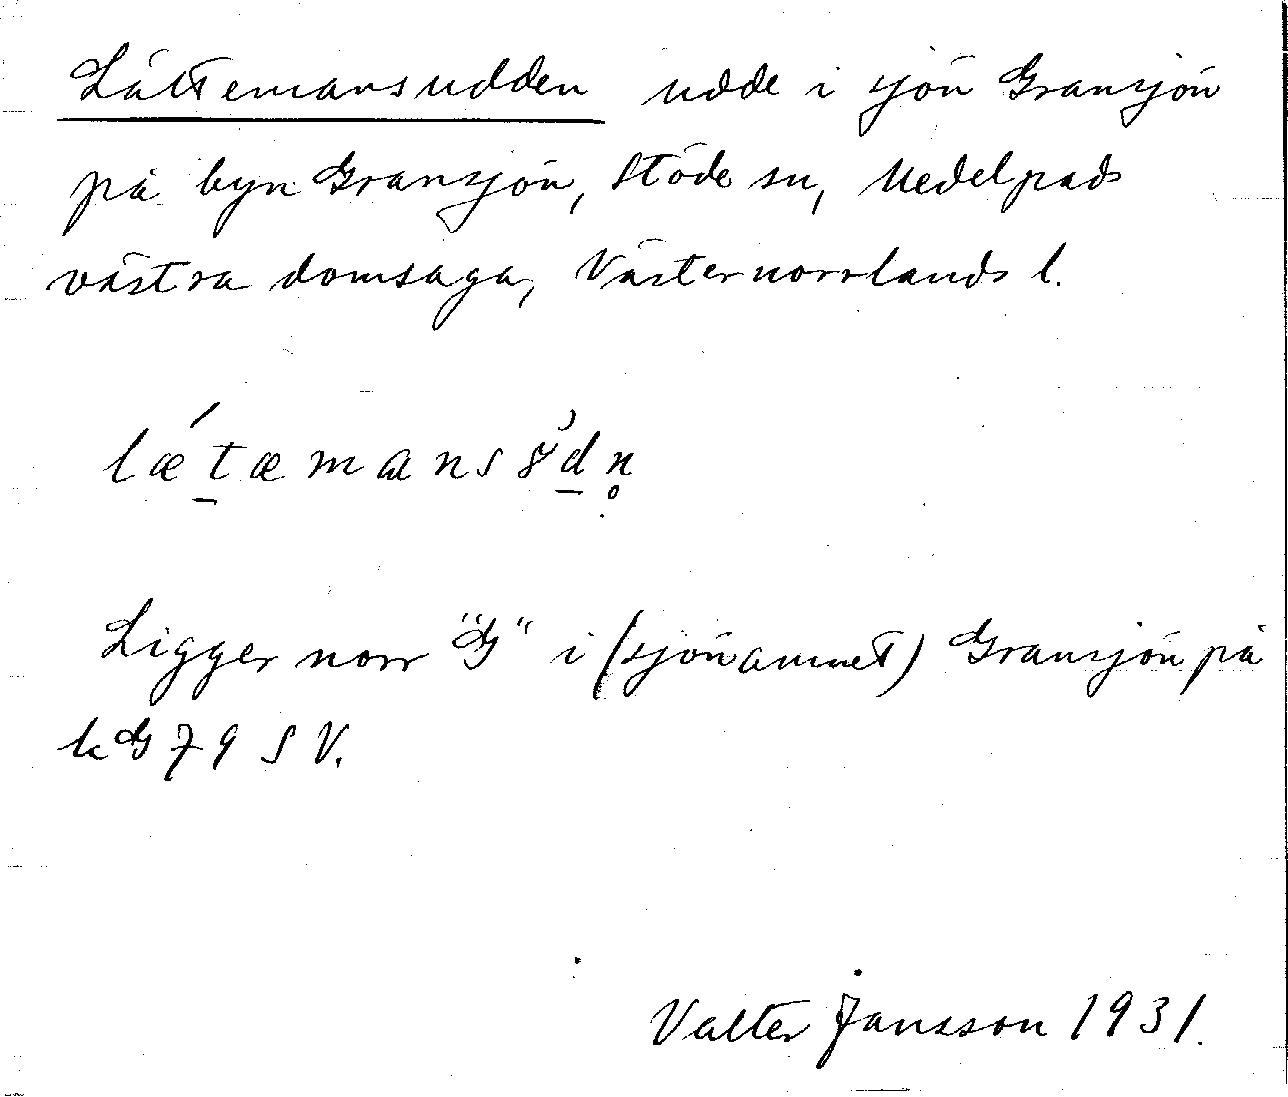 Lättemansudden udde i sjön Gransjön
på byn Gransjön, Stöde sn, Medelpads
västra domsaga, Västernorrlands l.
lǽt̠æmansʂd̠n̥
Ligger norr "G" i (sjönamnet) Gransjön på
kG 79 SV.
Valter Jansson 1931.